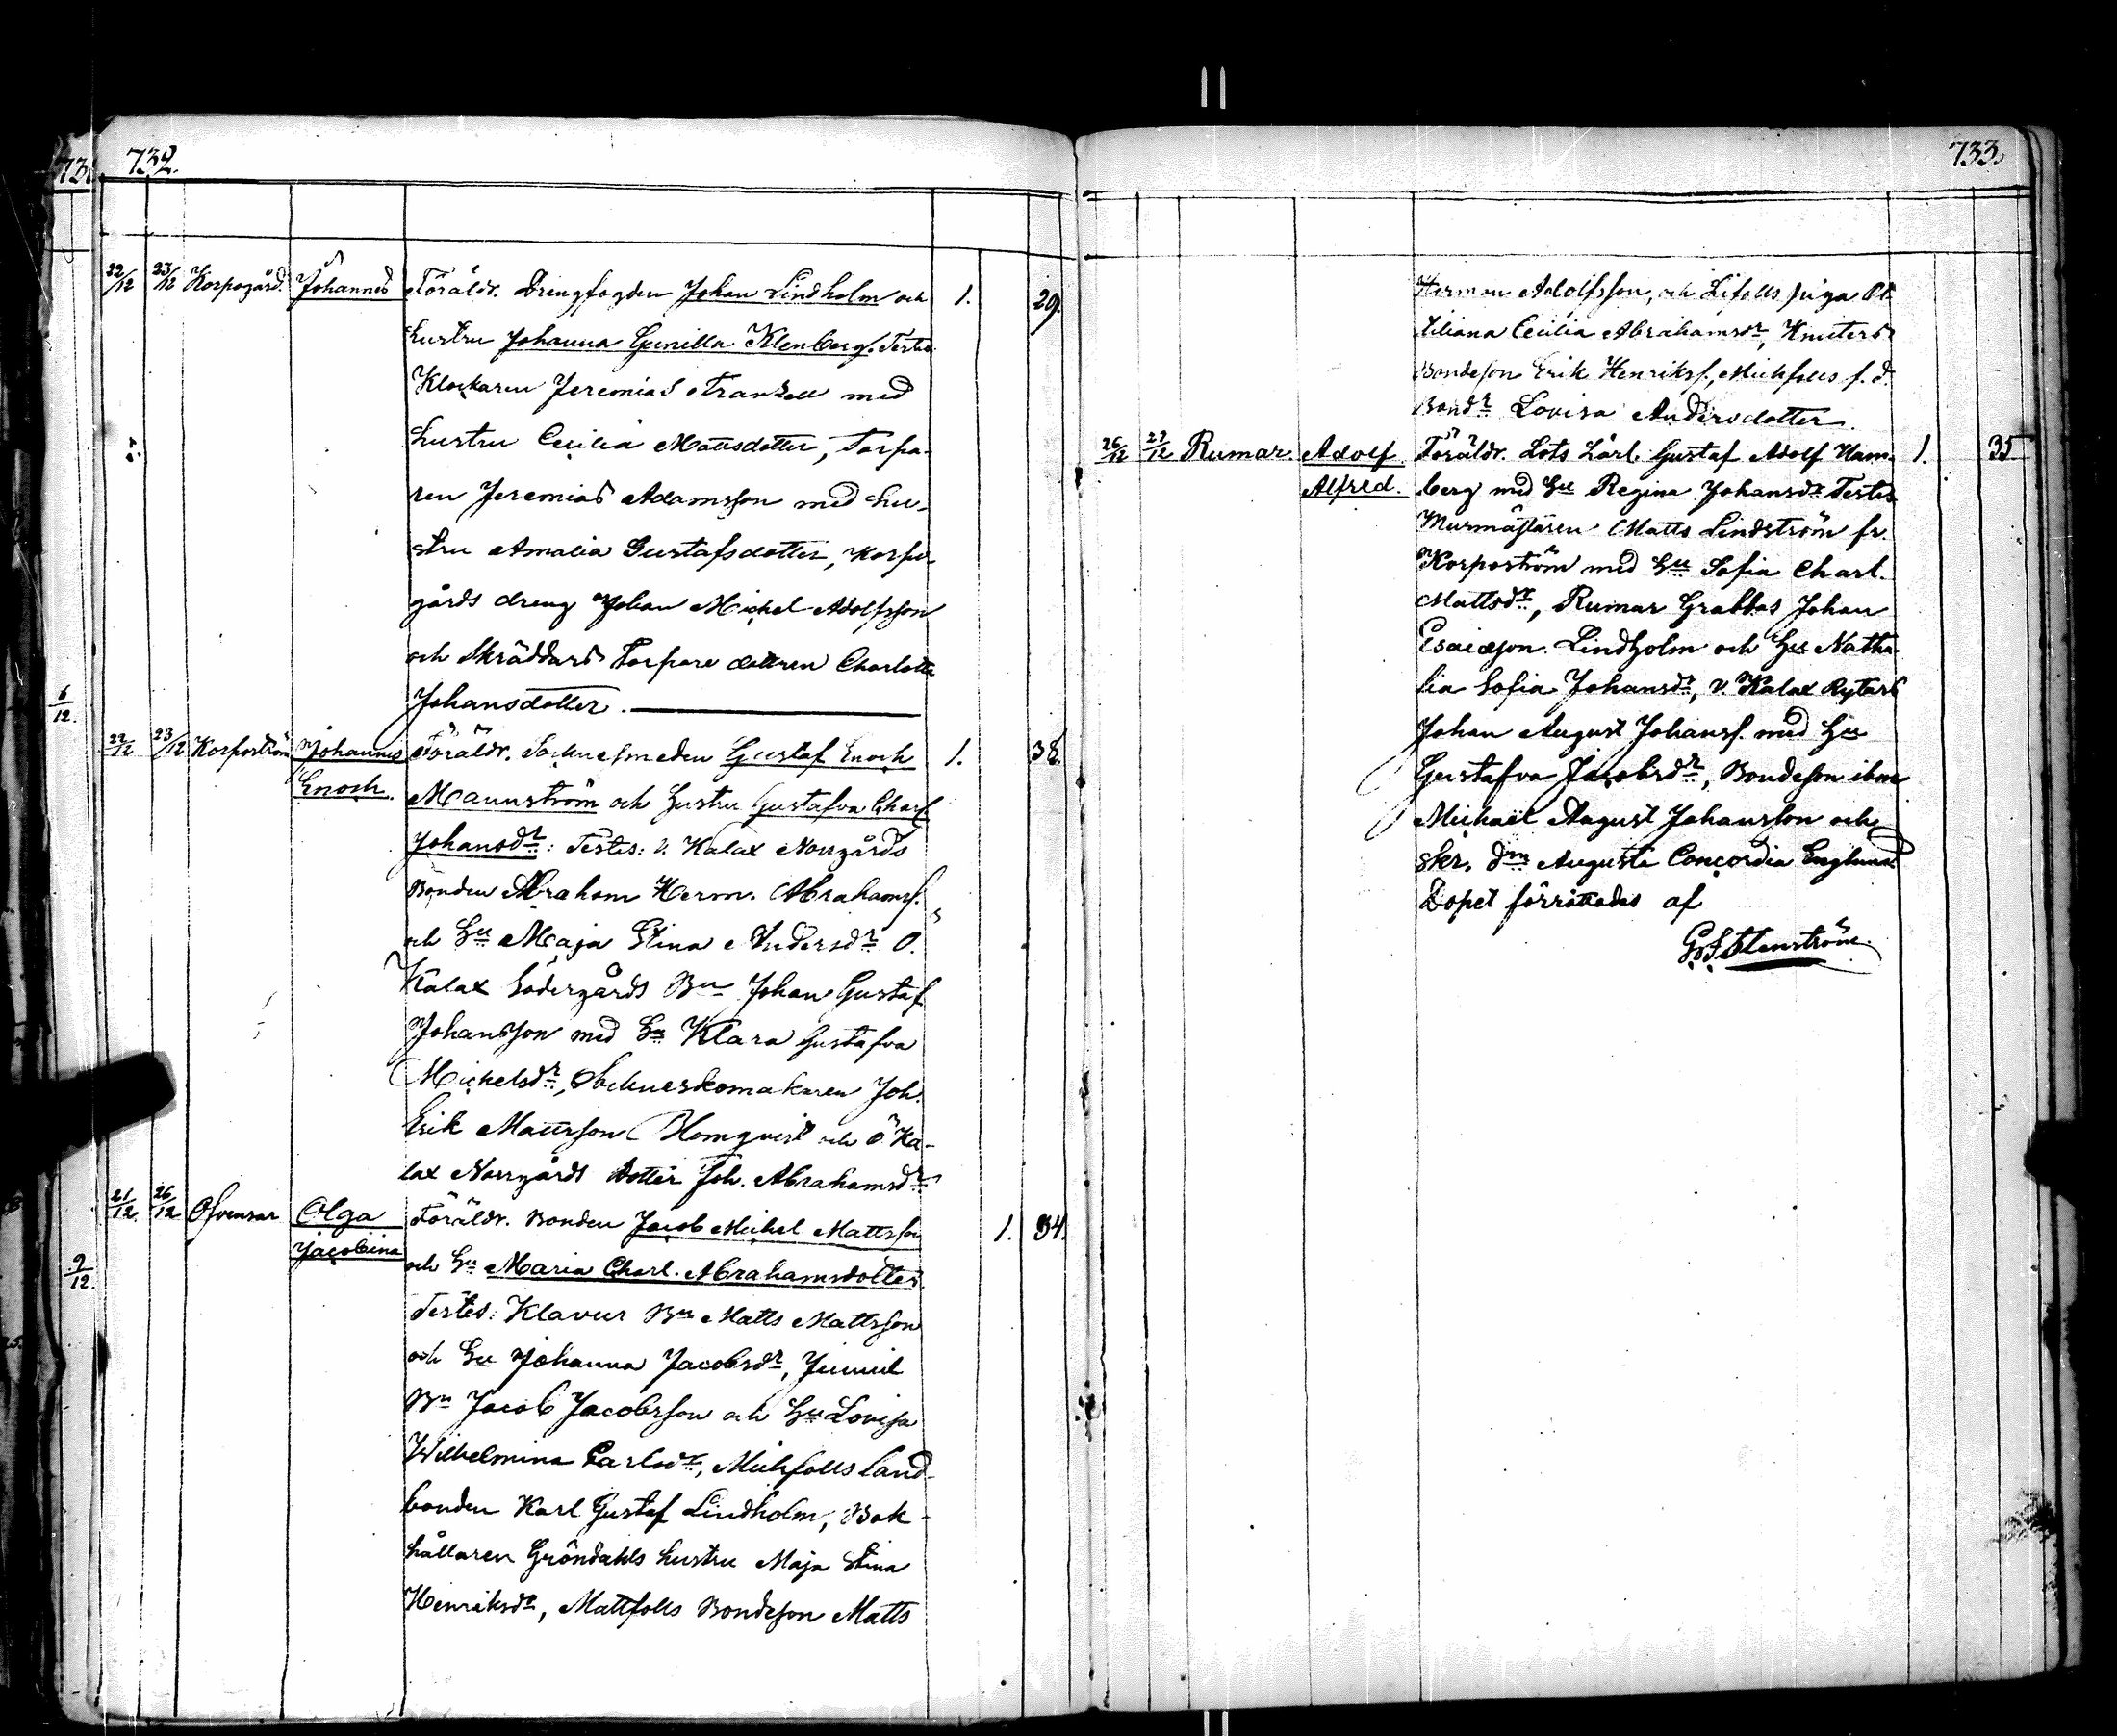 732.
22/12 23/12 Korpogård. Johannes Föräldr. Drengfogden Johan Lindholm och 1. 29.
hustru Johanna Gunilla Klenberg. Testes
Klockaren Jeremias Franzell med
hustru Cecilia Mattsdotter, Torpa-
ren Jeremias Adamsson med hu-
stru Amalia Gustafsdotter, Korpo-
gårds dreng Johan Michel Adolfsson
och Skräddars Torpare dottren Charlotta
Johansdotter.
22/12 23/12 Korpoström Johannes Föräldr. Socknesmeden Gustaf Enoch 1. 38.
Enoch. Mannström och hustru Gustafva Charl.
Johansdr: Testes: V. Kalax Norrgårds
Bonden Abraham Herm. Abrahamss.
och Hu Maja Stina Andersdr Ö.
Kalax Södergårds Bn Johan Gustaf
Johansson med Hu Klara Gustafva
Michelsdr, Sockneskomakaren Joh.
Erik Mattsson Blomqvist och Ö Ka-
lax Norrgårds dotter Joh. Abrahamsdr
21/12 26/12 Ofvensar Olga Föräldr. Bonden Jacob Michel Mattsson 1. 34.
Jacobina och Hu Maria Charl. Abrahamsdotter.
Testes: Klavus Bn Matts Mattsson
och Hu Johanna Jacobsdr,
Bn Jacob Jacobsson och Hu Lovisa
Wilhelmina Carlsdr, Michfolls land-
bonden Karl Gustaf Lindholm, Bok-
hållaren Gröndahls hustru Maja Stina
Henriksdr, Mattfolls Bondeson Matts
6/12.
9/12.
733.
Herman Adolfsson, och Lifolls piga Ot-
tiliana Cecilia Abrahamsdr, Knuters
Bondeson Erik Henrikss., Michfolls f. d.
Bondr Lovisa Andersdotter.
26/12 27/12 Rumar. Adolf Föräldr. Lots Lärl. Gustaf Adolf Ham- 1. 35
Alfred. berg med Hu Regina Johansdr Testes
Murmästaren Matts Lindström fr.
Korpoström med Hu Sofia Charl.
Mattsdr, Rumar Grabbas Johan
Esaiasson Lindholm och Hu Natha-
lia Sofia Johansdr, V. Kalax Rytars
Johan August Johanss. med Hu
Gustafva Jacobsdr, Bondeson ibm
Michael August Johansson och
skr. dm Augusta Concordia Englund
Dopet förrättades af
Stenström.